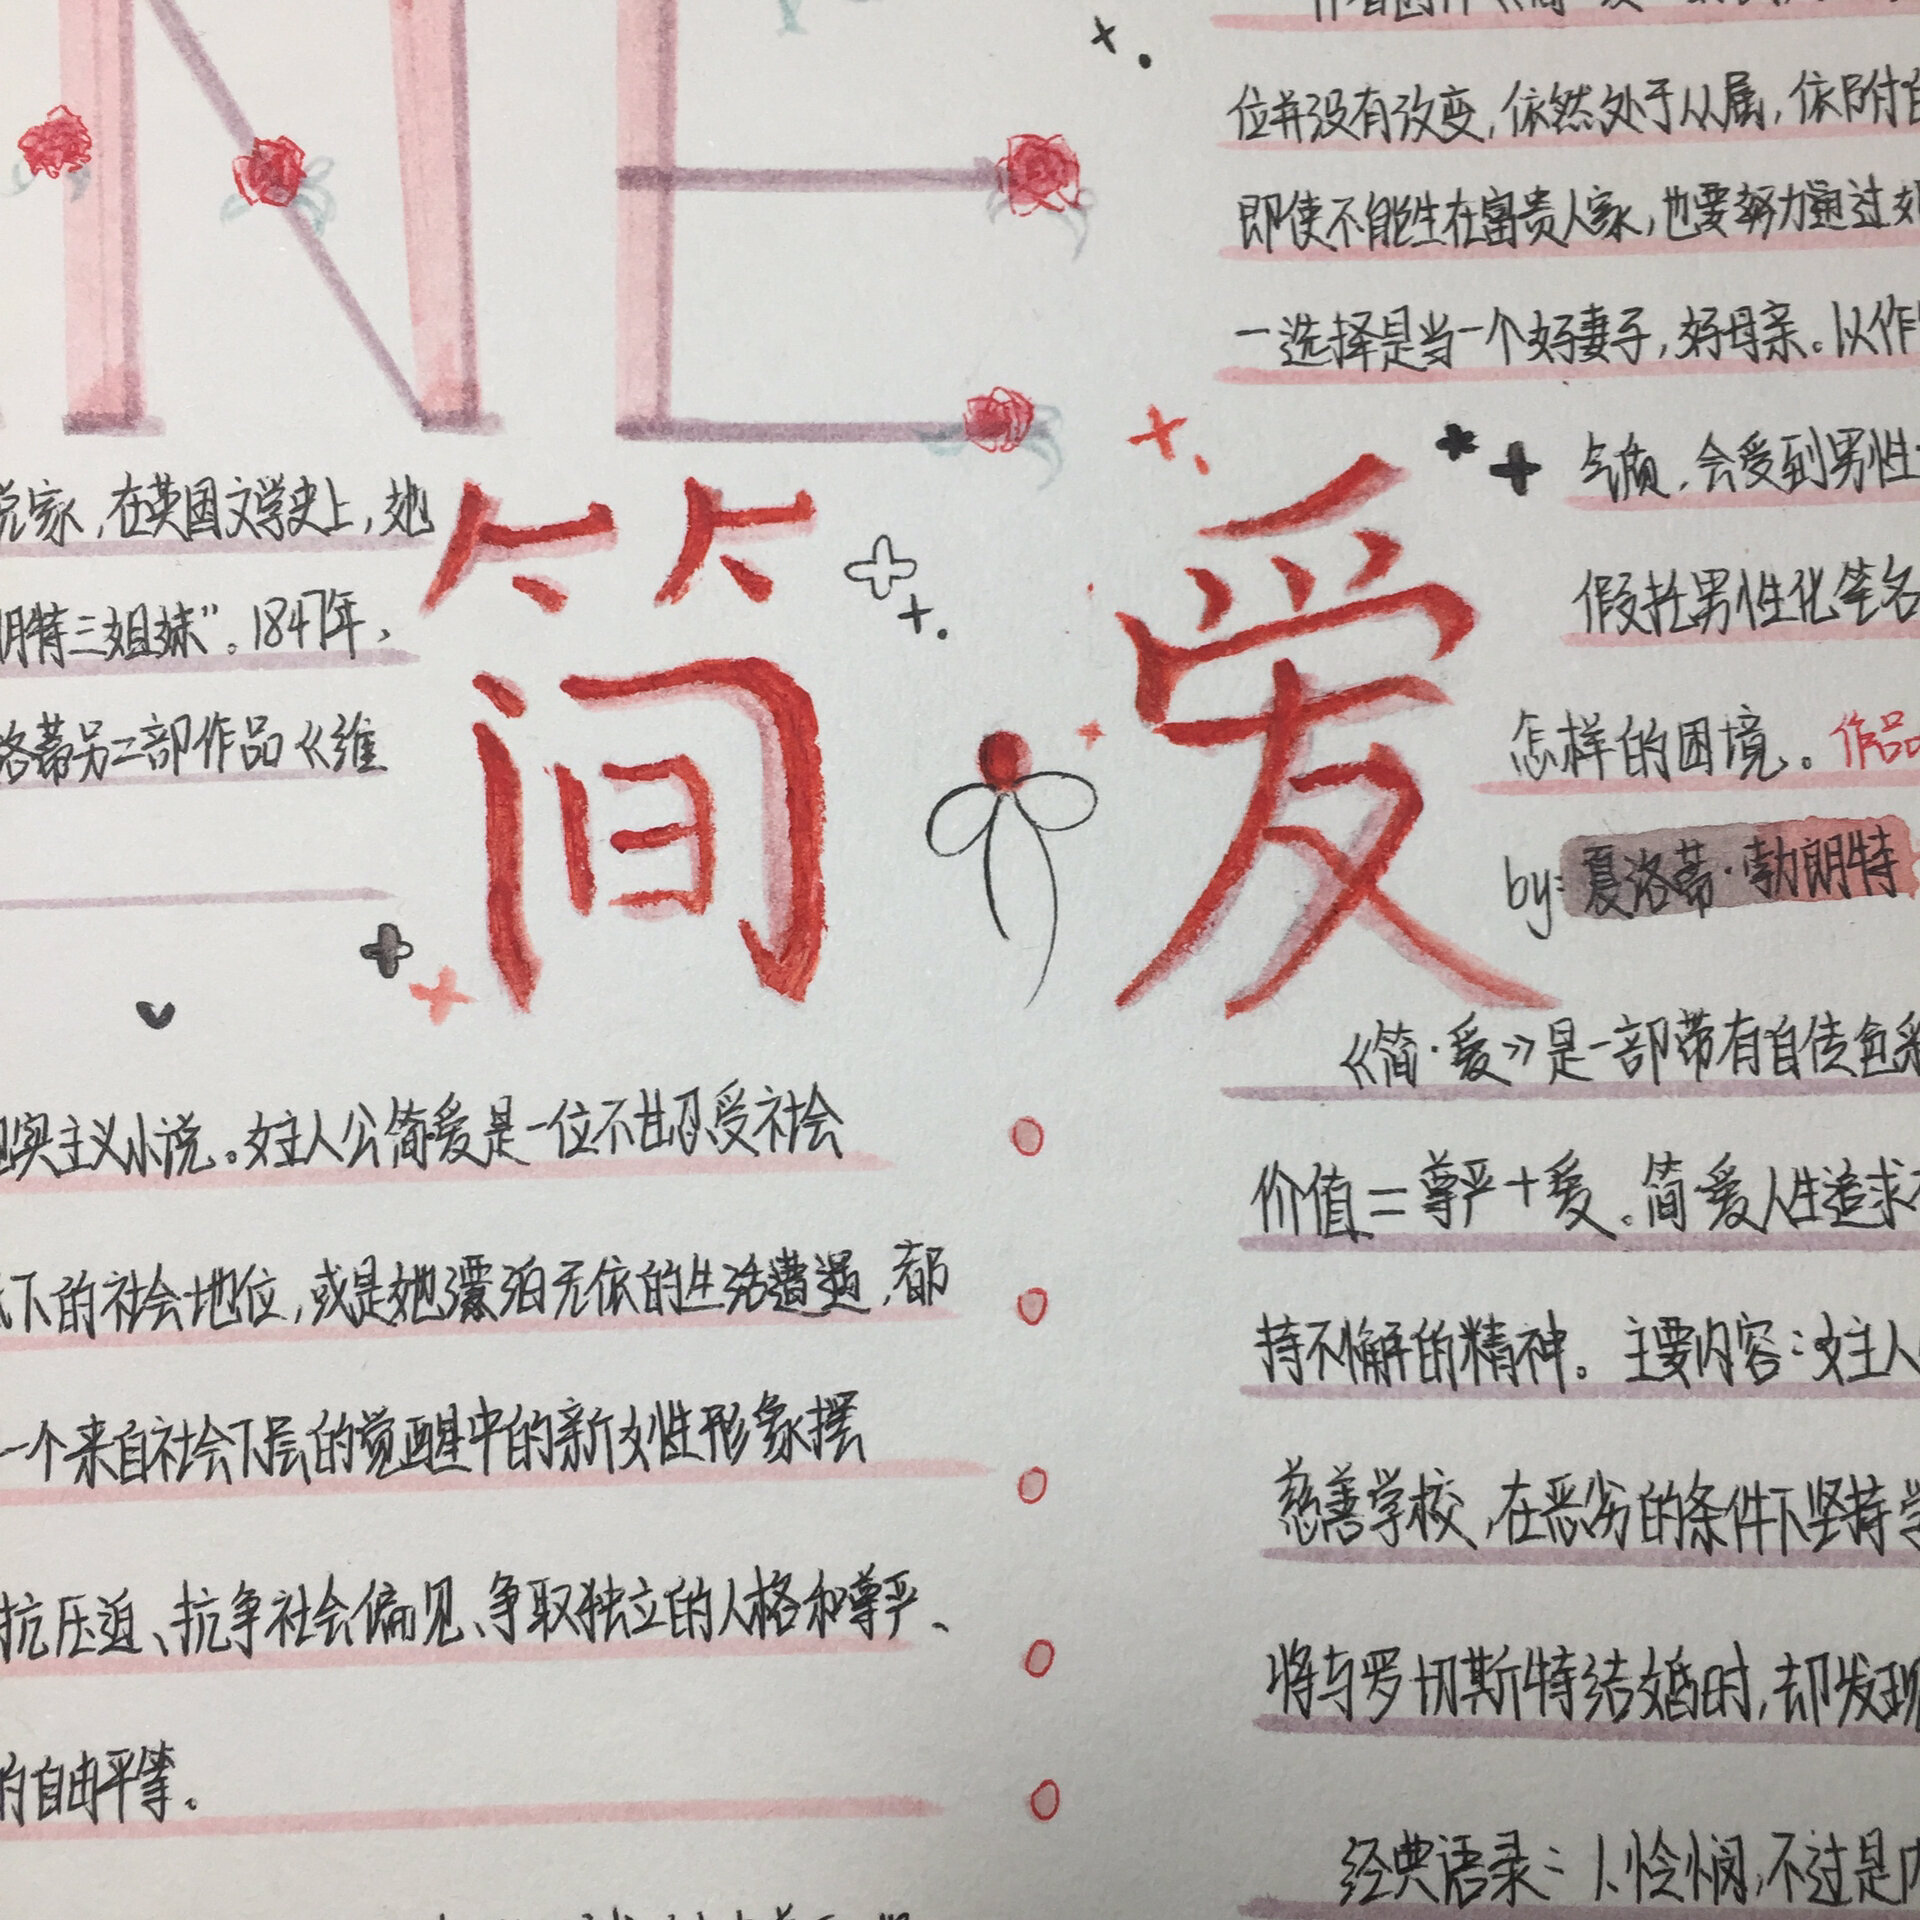 NE
说家,在英国文学史上,她
朗特三姐妹”。1847年,
洛蒂另二部作品《维
简爱
位并没有改变,依然处于从属,依附
即使不能生在富贵人家,也要努力通过
一选择是当一个好妻子,好母亲。以作
气质,会受到男性
假托男性化笔名
怎样的困境。作品
by:夏洛蒂·勃朗特
现实主义小说。女主人公简·爱是一位不甘忍受社会
下的社会地位,或是她漂泊无依的生活遭遇,都
一个来自社会下层的觉醒中的新女性形象摆
抗压迫、抗争社会偏见、争取独立的人格和尊严、
的自由平等。
《简·爱》是一部带有自传色彩
价值=尊严+爱。简·爱人生追求
持不懈的精神。主要内容:女主人
慈善学校,在恶劣的条件下坚持学
将与罗切斯特结婚时,却发现
经典语录:1.怜悯,不过是内